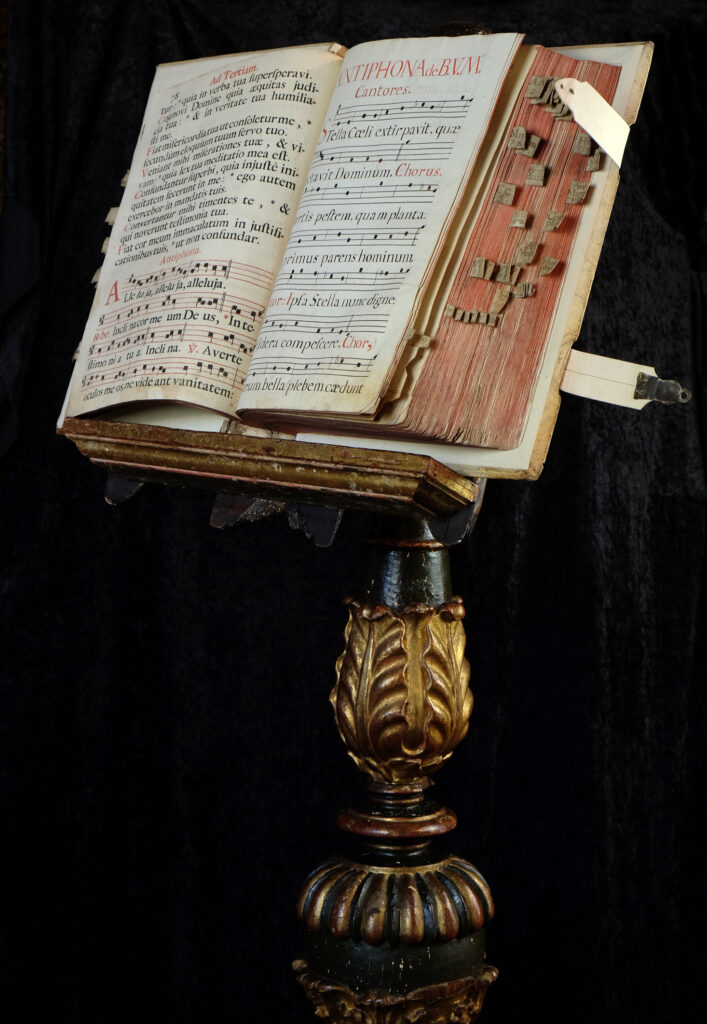 Ad Tertiam.
8.
tur, * quia in verba tua superſperavi.
Cognovi Domine quia æquitas judi-
cia tua: * & in veritate tua humilia-
ſti me.
Fiat miſericordia tua ut conſoletur me, *
ſecundum eloquium tuum ſervo tuo.
Veniant mihi miſerationes tuæ, & vi-
vam: * quia lex tua meditatio mea eſt.
Confundantur ſuperbi, quia injuſtè ini-
quitatem fecerunt in me: * ego autem
exercebor in mandatis tuis.
Convertantur mihi timentes te, * &
qui noverunt teſtimonia tua.
Fiat cor meum immaculatum in juſtifi-
cationibus tuis, * ut non confundar.
Antiphona.
Alle lu ja, alleluja, alleluja.
Incli na cor me um De us, * In te
ſtimo ni a tu a. Incli na. ℣. Averte
oculos me os ne vide ant vanitatem:
NTIPHONA de B.V.M.
Cantores.
Stella Cœli extirpavit, quæ
tavit Dominum. Chorus.
rtis peſtem, quam planta:
primus parens hominum.
tor: Ipſa Stella nunc digne:
ſidera compeſcere. Chor,
rum bella plebem cædunt